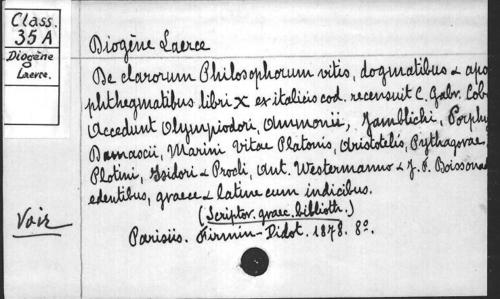 Class.
35 A
Diogène
Laerce.
Voir
Diogène Laerce
De clarorum Philosophorum vitis, dogmatibus & apo
phthegmatibus libri X ex italicis cod. recensuit C. Gabr. Cob
Accedunt Olympiodori, Ammonii, Jamblichi, Porphy
Damascii, Marini Vitae Platonis, Aristotelis, Pythagorae,
Plotini, Isidori & Procli, Ant. Westermanno & J. F. Boissonad
edentibus, graece & latine cum indicibus.
(Scriptor. graec. biblioth.)
Parisiis. Firmin-Didot. 1878. 8º.